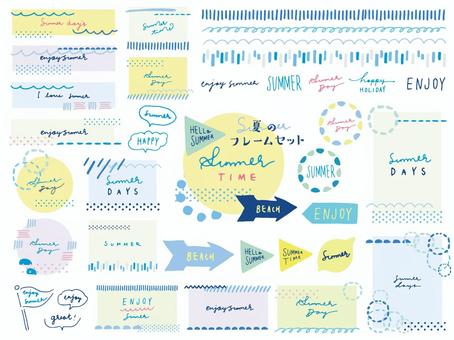 Summer day's
enjoy summer
I love summer
enjoy summer
Summer
time
Summer
Day
Summer
HAPPY
enjoy summer
SUMMER
Summer
Day
happy
HOLIDAY
ENJOY
HELLO
SUMMER
夏の
フレームセット
Summer
TIME
Summer
Day
SUMMER
Summer
DAYS
Summer
Day
Summer
DAYS
BEACH
ENJOY
Summer
Day
SUMMER
BEACH
HELLO
SUMMER
SUMMER
TIME
Summer
Summer
days
enjoy
Summer
enjoy
great!
ENJOY
Summer
enjoy summer
Summer
Day